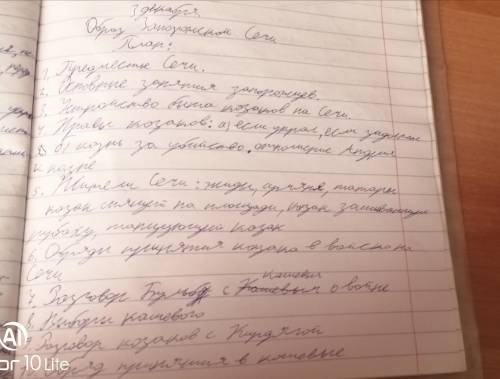 3 декабря
Образ Запорожской Сечи
План:
1. Предместье Сечи.
2. Основные занятия запорожцев.
3. Устройство быта козаков на Сечи.
4. Нравы козаков: а) если украл, если задолжал
б) казнь за убийство. отношение Андрия
к казне
5. Жители Сечи: жиды, армяне, татары
козак спящий на площади, козак
рубаху, танцующий козак
6. Обряды принятия козака в войско на
Сечи
7. Разговор Бульбы с кошевым о войне
8. Выборы кошевого
9. Разговор козаков с Кирдягой
Обряд принятия в кошевые
AI
or 10 Lite